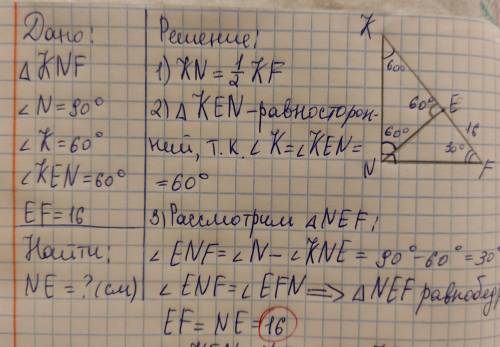 Дано:
△KNF
∠N=90°
∠K=60°
∠KEN=60°
EF=16
Найти:
NE=?(см)
Решение:
1) KN=1/2 KF
2) △KEN-равносторон-
ний, т.к. ∠K=∠KEN=
=60°
3) Рассмотрим △NEF:
∠ENF=∠N-∠KNE=90°-60°=30°
∠ENF=∠EFN⟹△NEF равнобедр
EF=NE=16
K
60°
60° E
60° 16
30°
N F